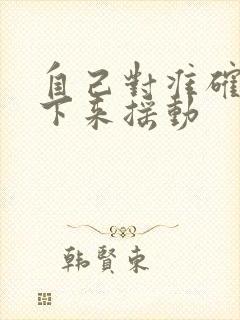 自己對准確
下來搖動
韩賢東